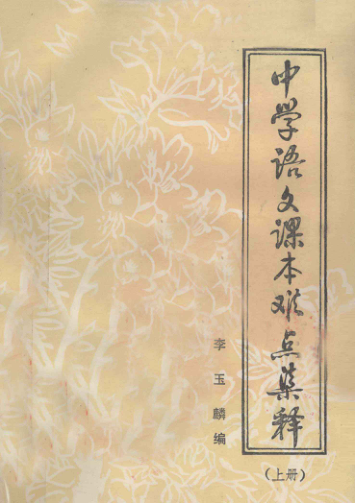 中学语文课本难点集释
（上册）
李玉麟编